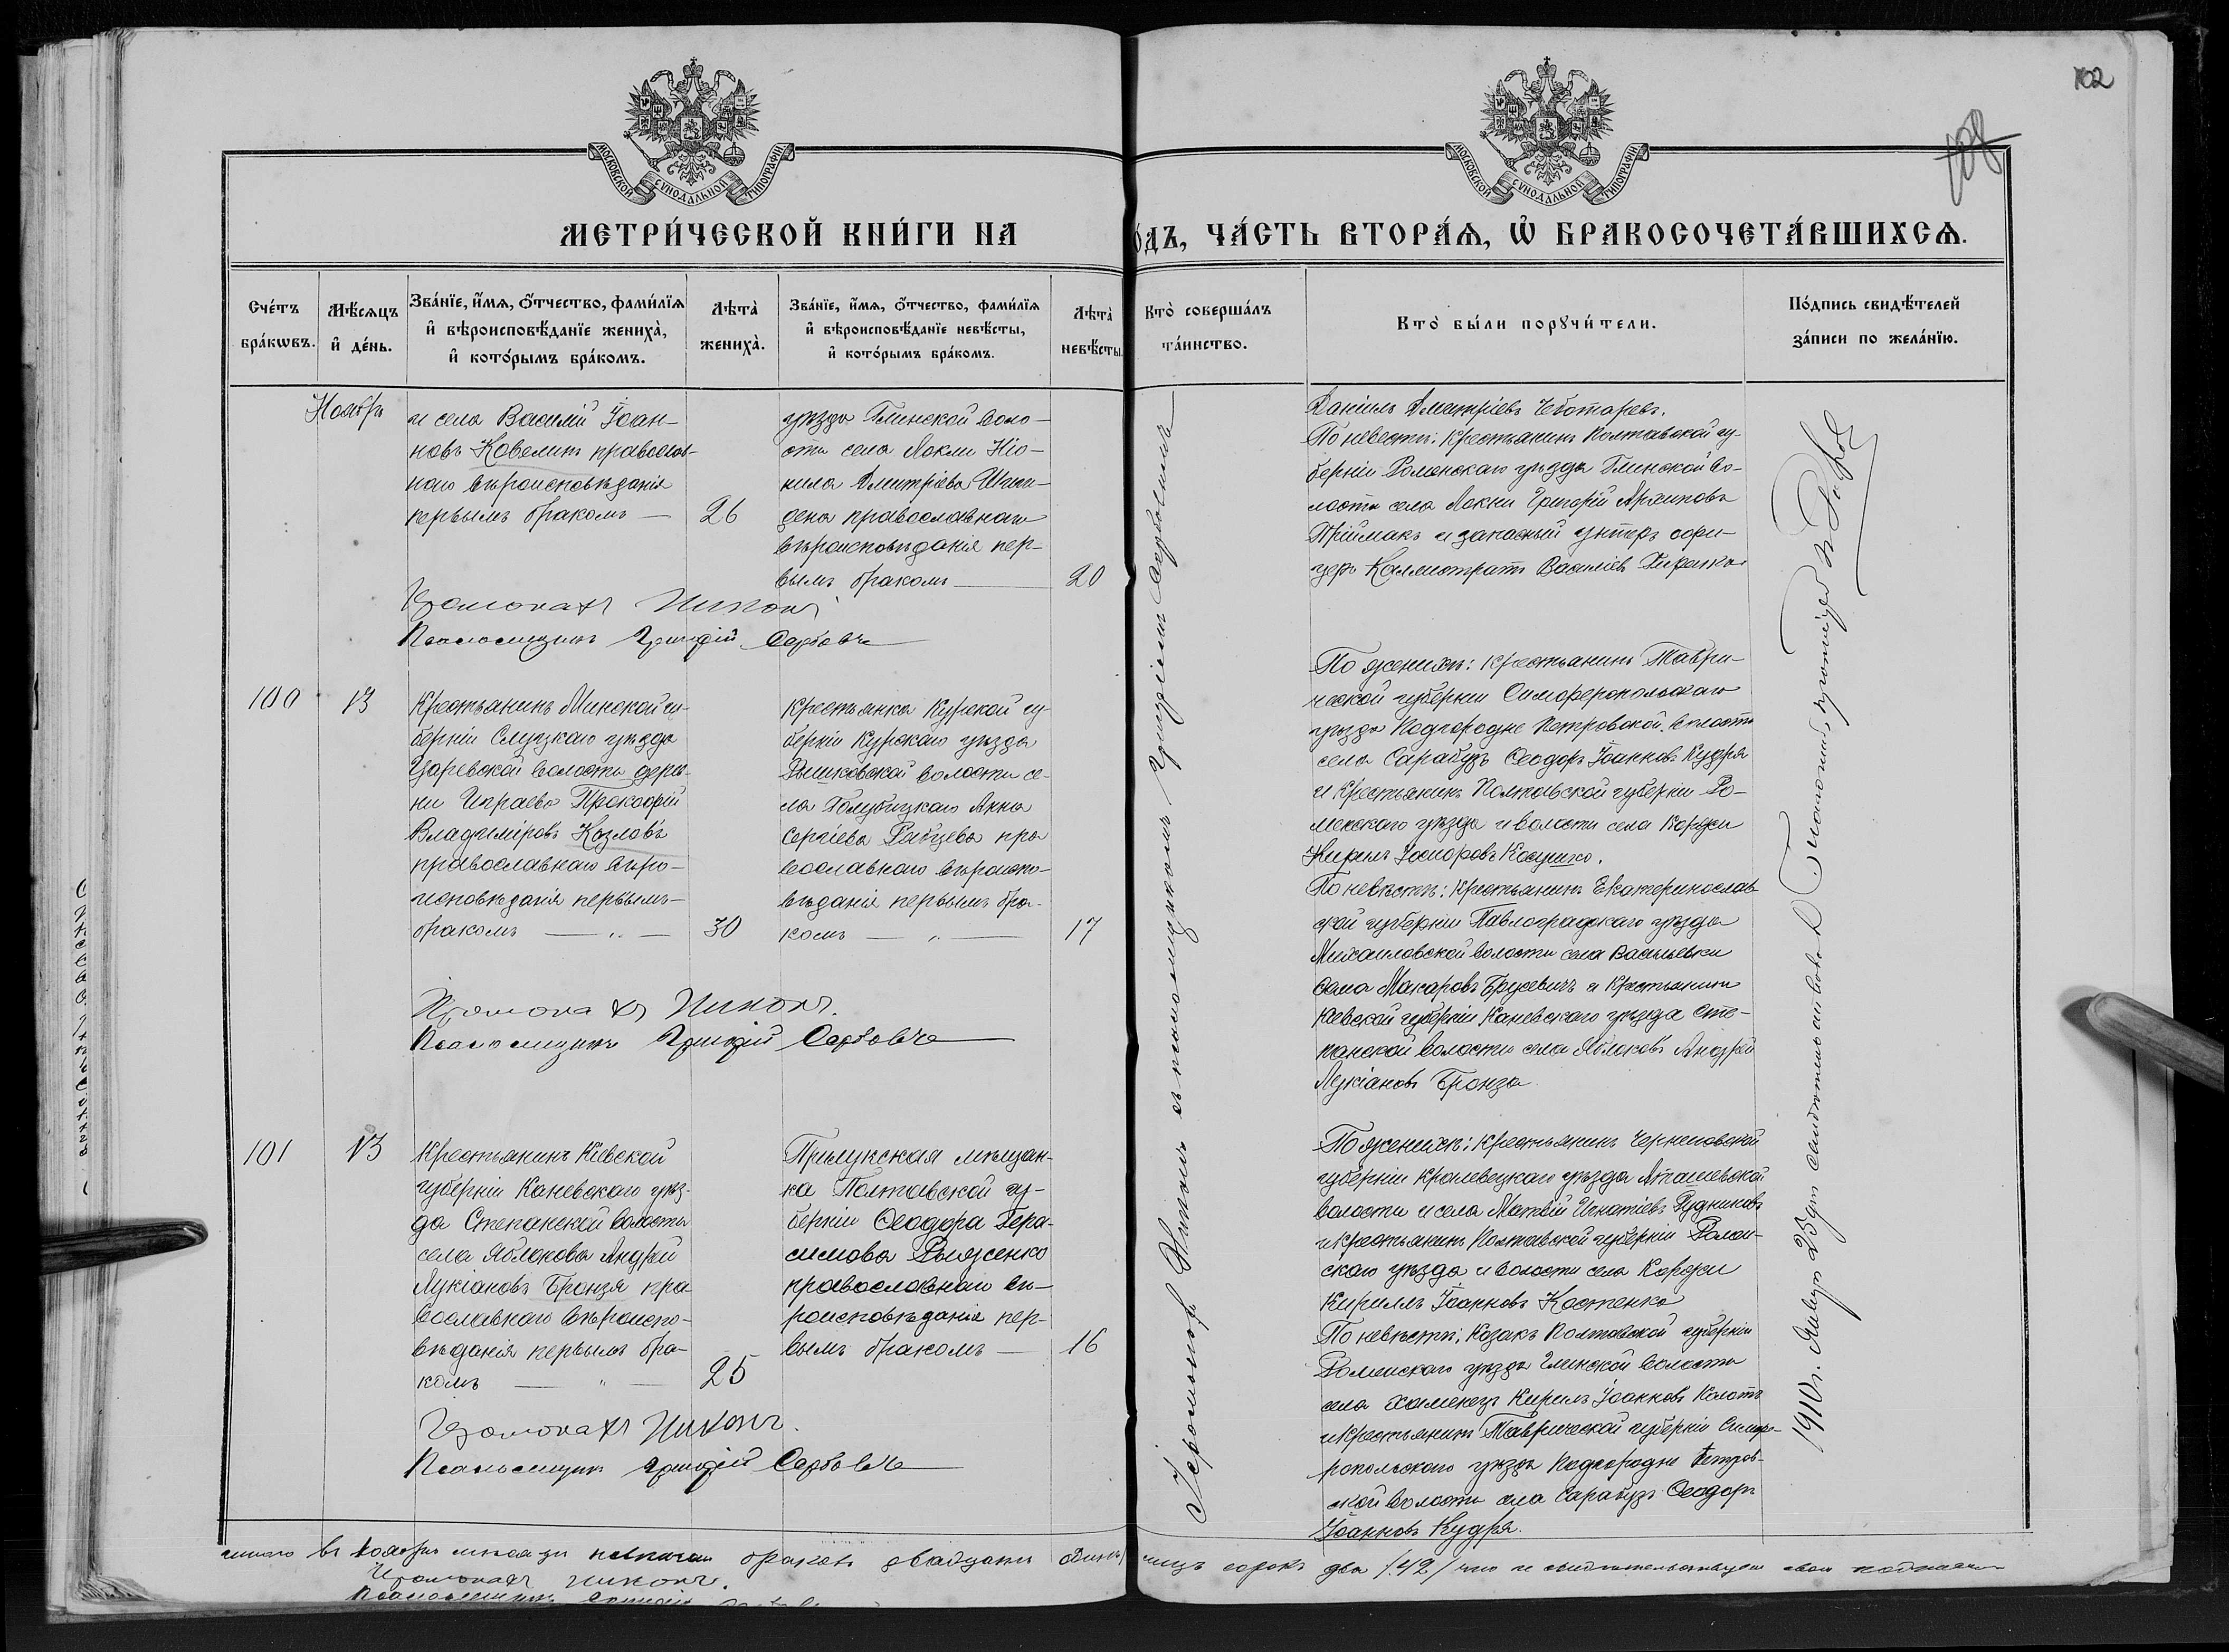 102
108
МОСКОВСКОЙ СѴНОДАЛЬНОЙ ТИПОГРАФІИ
МОСКОВСКОЙ СѴНОДАЛЬНОЙ ТИПОГРАФІИ
МЕТРИ́ЧЕСКОЙ КНИ́ГИ НА
О́ДЪ, ЧА́СТЬ ВТОРА́Ѧ, Ѽ БРАКОСОЧЕТА́ВШИХСѦ.
Сче́тъ бра́кѡвъ.
Мѣ́сѧцъ и҆ де́нь.
Зва́нїе, и҆́мѧ, ѻ҆́тчество, фами́лїѧ
и҆ вѣроисповѣ́данїе жениха̀,
и҆ кото́рымъ бра́комъ.
Лѣта̀ жениха̀.
Зва́нїе, и҆́мѧ, ѻ҆́тчество, фами́лїѧ
и҆ вѣроисповѣ́данїе невѣ́сты,
и҆ кото́рымъ бра́комъ.
Лѣта̀ невѣ́сты.
Кто̀ соверша́лъ та́инство.
Кто̀ бы́ли порꙋчи́тели.
По́дпись свидѣ́телей
за́писи по жела́нїю.
Ноябрь
и села Василій Іоан-
новъ Ковелинъ православ-
наго вѣроисповѣданія
первымъ бракомъ —
26
уѣзда Глинской воло-
сти села Локни Нео-
нила Дмитріева
дена православнаго
вѣроисповѣданія пер-
вымъ бракомъ —
20
Даніилъ Дмитріевъ Чеботаревъ.
По невѣстѣ: крестьянинъ Полтавской гу-
берніи Роменскаго уѣзда Глинской во-
лости села Локни Григорій Архиповъ
Приймакъ и запасный унтеръ офи-
церъ Каллистратъ Василіевъ
Іеромонахъ Никонъ
Псаломщикъ Григорій Сербовъ
100
13
Крестьянинъ Минской гу-
берніи Слуцкаго уѣзда
Царевской волости дерев-
ни Играево Прокофій
Владиміровъ Козловъ
православнаго вѣро-
исповѣданія первымъ
бракомъ — „ —
30
Крестьянка Курской гу-
берніи Курскаго уѣзда
Рышковской волости се-
ла Голубицкаго Анна
Сергіева Рябцева пра
вославнаго вѣроиспо-
вѣданія первымъ бра-
комъ — „ —
17
По женихѣ: крестьянинъ Таври-
ческой губерніи Симферопольскаго
уѣзда Подгородне Петровской волости
села Сарабузъ Ѳеодоръ Іоанновъ Кудря
и крестьянинъ Полтавской губерніи Ро-
менскаго уѣзда и волости села Коржи
По невѣстѣ: крестьянинъ Екатеринослав
ской губерніи Павлоградскаго уѣзда
Михаиловской волости села Васильевки
Ѳома Макаровъ Брусевичъ и крестьянинъ
Кіевской губерніи Каневскаго уѣзда Сте-
панской волости села Яблоковъ Андрей
Лукіановъ Бронзя
Іеромонахъ Никонъ.
Псаломщикъ Григорій Сербовъ
101
13
Крестьянинъ Кіевской
губерніи Каневскаго уѣз-
да Степанской волости
села Яблокова Андрей
Лукіановъ Бронзя пра
вославнаго вѣроиспо-
вѣданія первымъ бра-
комъ — „ —
25
Прилукская мѣщан-
ка Полтавской гу-
берніи Ѳеодора Гера-
симова Рыженко
православнаго вѣ-
роисповѣданія пер-
вымъ бракомъ —
16
По женихѣ: крестьянинъ Черниговской
губерніи Кролевецкаго уѣзда
волости и села Матвій Игнатіевъ Рудниковъ
и крестьянинъ Полтавской губерніи Ромен-
скаго уѣзда и волости села Коржи
Кириллъ Іоанновъ Костенко
По невѣстѣ: козакъ Полтавской губерніи
Роменскаго уѣзда Глинской волости
села Хоменецъ Кирилъ Іоанновъ
и крестьянинъ Таврической губерніи Симфе-
ропольскаго уѣзда Подгородне Петров-
ской волости села Сарабузъ Ѳеодоръ
Іоанновъ Кудря.
Іеромонахъ Никонъ.
Псаломщикъ Григорій Сербовъ
Іеромонахъ Никонъ съ псаломщикомъ Григоріемъ Сербовымъ
1910 г. Января 25 дня свидѣтельствовалъ Благочинный, протоіерей
въ ноябрѣ мѣсяцѣ браковъ двадцать сорокъ два /42/ что и свидѣтельствуемъ
Іеромонахъ Никонъ.
Псаломщикъ